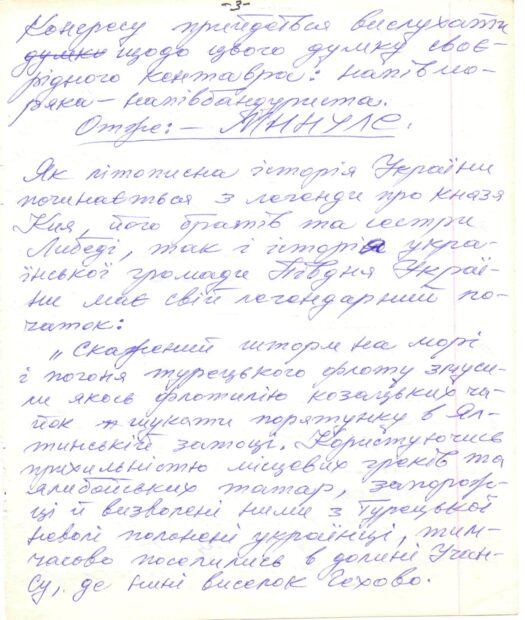 -3-
Конгресу прийдеться вислухати
думку щодо цього думку своє-
рідного кентавра: напівмо-
ряка – напівбандуриста.
Отже: – МИНУЛЕ.
Як літописна історія України
починається з легенди про князя
Кия, його братів та сестри
Либеді, так і історія укра-
їнської громади Півдня Украї-
ни має свій легендарний по-
чаток:
„Скажений шторм на морі
і погоня турецького флоту змуси-
ли якось флотилію козацьких ча-
йок шукати порятунку в Ял-
тинській затоці. Користуючись
прихильністю місцевих греків та
ялибойских татар, запорож-
ці й визволені ними з Турецької
неволі полонені українці, тим-
часово поселились в долині Учан-
Су, де нині виселок Чехово.